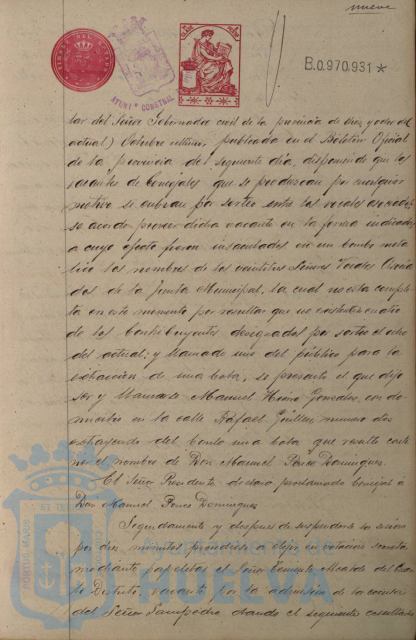 nueve
B.0.970.931*
AYUNT. CONSTNAL
lar del Señor Gobernador civil de la provincia de diez y ocho del
actual) Octubre ultimo, publicada en el Boletin Oficial
de la provincia del siguiente dia, disponiendo que las
vacantes de Concejales que se produzcan por cualquier
motivo se cubran por sorteo entre los vocales asociados,
se acordó proveer dicha vacante en la forma indicada,
a cuyo efecto fueron insaculados en un bombo metá
lico los nombres de los veintitres Señores Vocales Asocia
dos de la Junta Municipal, la cual no esta comple
ta en este momento por resultar que no existen cuatro
de los Contribuyentes designados por sorteo el ocho
del actual; y llamado uno del público para la
extracción de una bola, se presentó el que dijo
ser y llamarse Manuel Hierro Gonzalez, con do
micilio en la calle Rafael Guillen, numero dos
extrayendo del bombo una bola que resultó conte
ner el nombre de Don Manuel Ponce Dominguez.
El Señor Presidente declara proclamado Concejal á
Don Manuel Ponce Dominguez
Seguidamente y despues de suspenderse la sesion
por diez minutos procedióse a elegir en votacion secreta
mediante papeletas el Señor Teniente Alcalde del
Distrito, vacante por la admision de la excusa
del Señor Sampedro dando el siguiente resultado
Ayuntamiento de
HUELVA